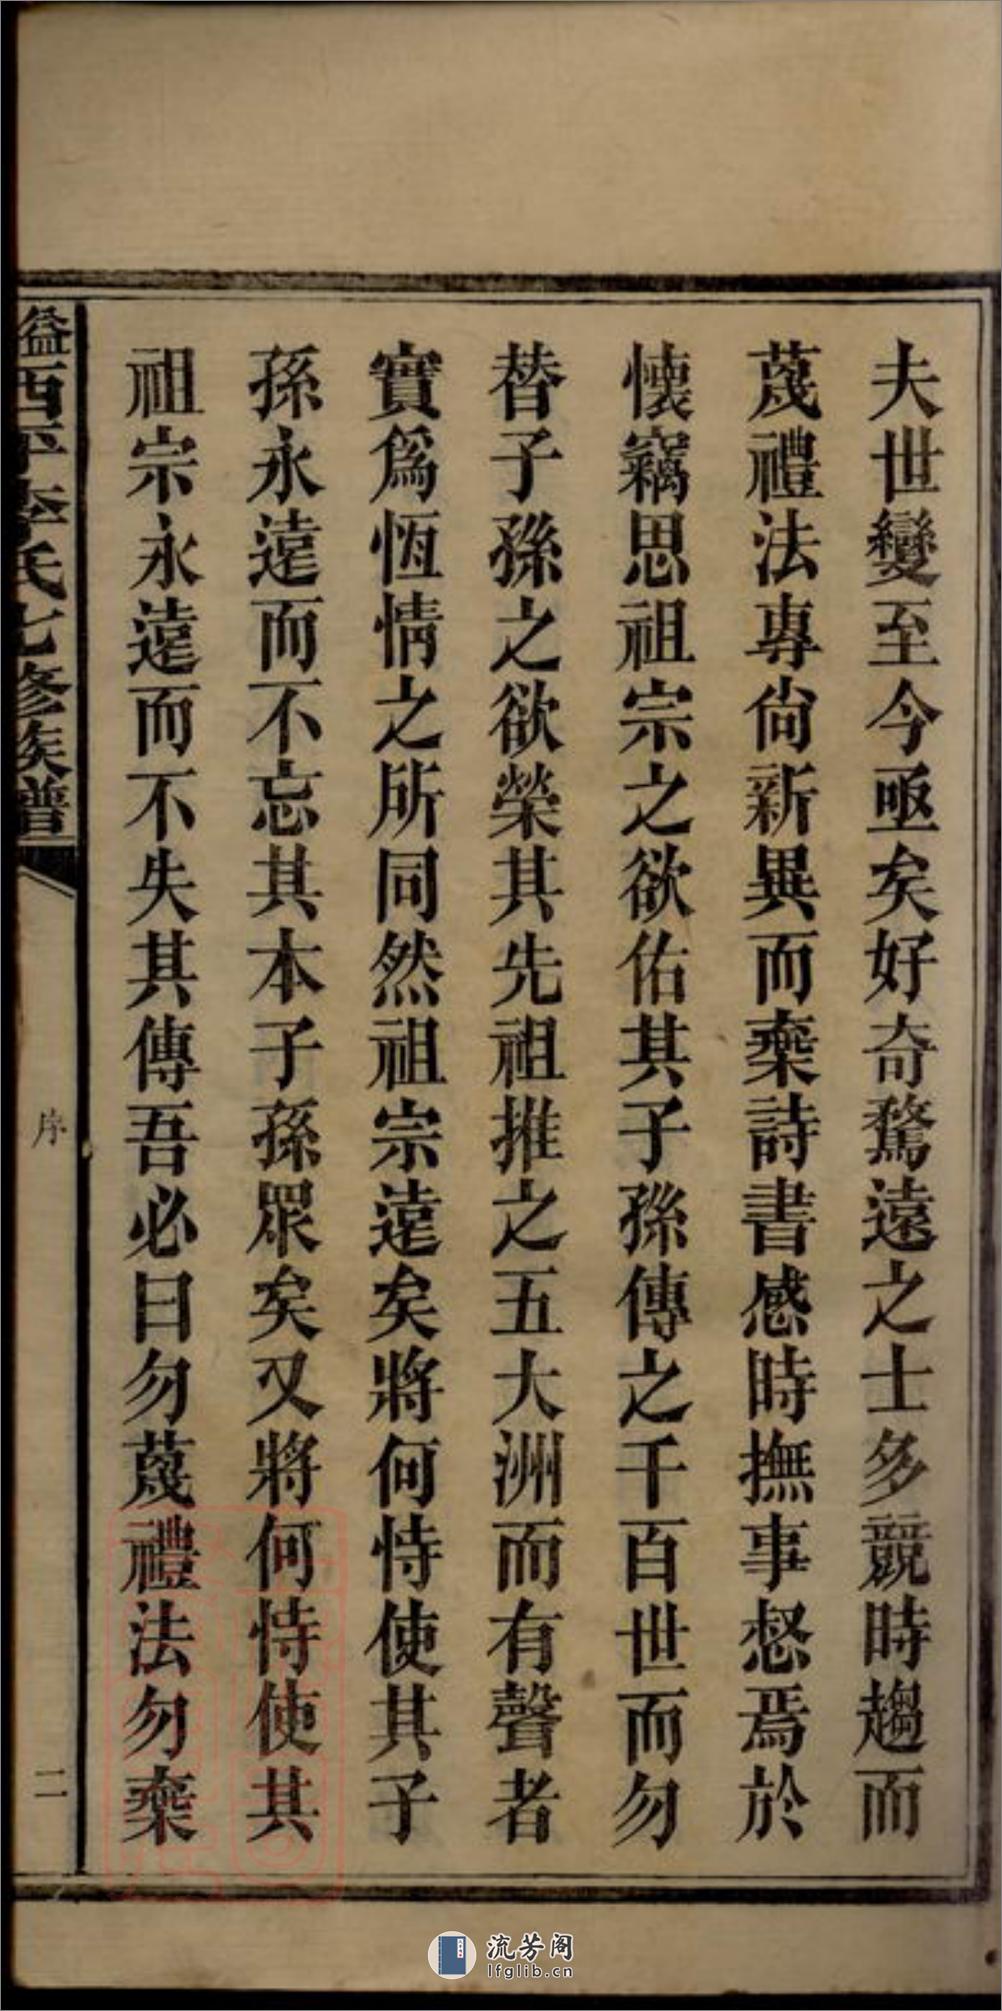 夫世變至今亟矣好奇騖遠之士多競時趨而
蔑禮法專尙新異而棄詩書感時撫事惄焉於
懷竊思祖宗之欲佑其子孫傳之千百世而勿
替子孫之欲榮其先祖推之五大洲而有聲者
實爲恆情之所同然祖宗遠矣將何恃使其子
孫永遠而不忘其本子孫眾矣又將何恃使其
祖宗永遠而不失其傳吾必曰勿蔑禮法勿棄
益西平李氏七修族譜
序
二
流芳阁
lfglib.cn